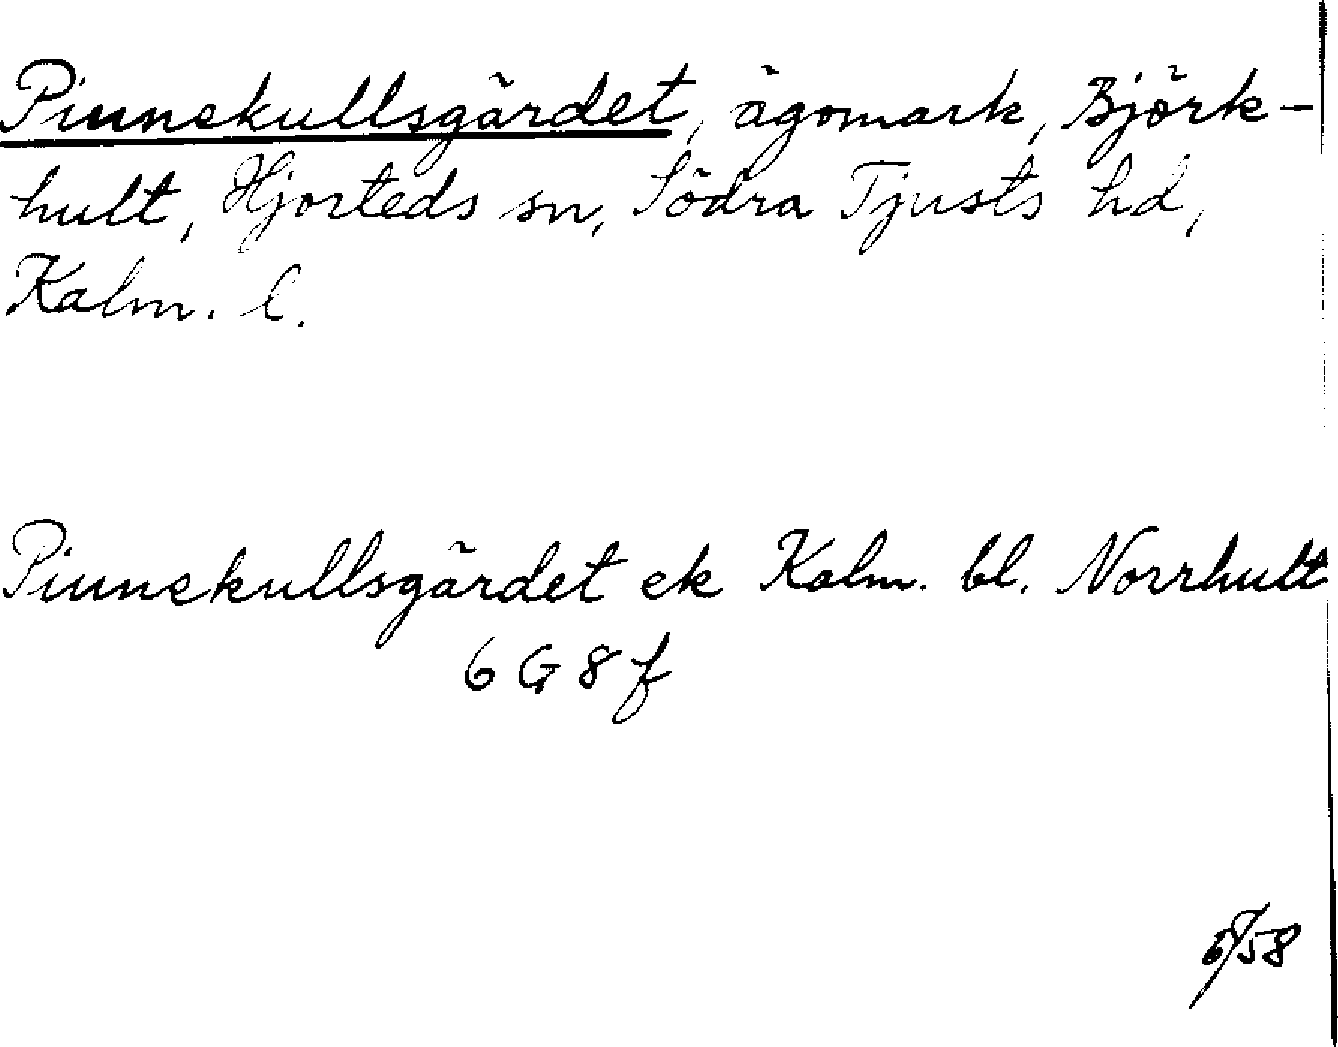 Pinnekullsgärdet, ägomark, Björk-
hult, Hjorteds sn, Södra Tjusts hd,
Kalm. l.
Pinnekullsgärdet ek Kalm. bl. Norrhult
6 G 8 f